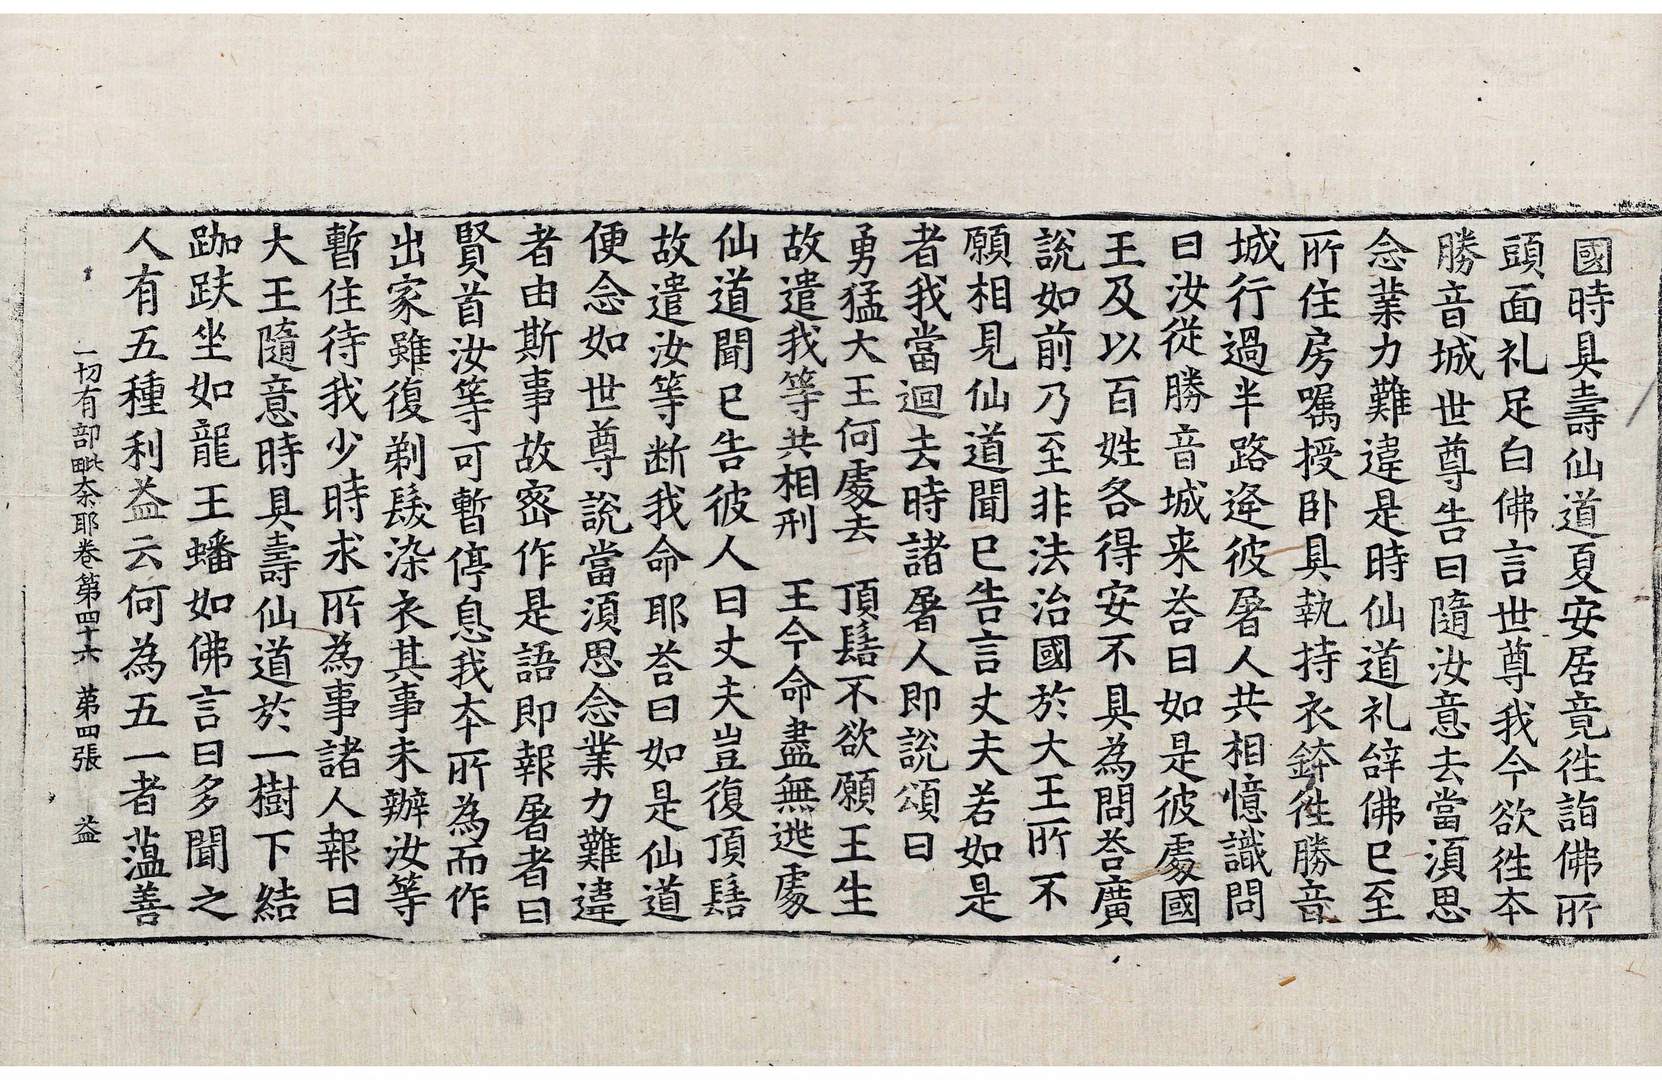 國時具壽仙道夏安居竟徃詣佛所
頭面礼足白佛言世尊我今欲徃夲
勝音城世尊告曰隨汝意去當湏思
念業力難違是時仙道礼辝佛已至
所住房囑授卧具執持衣鉢徃勝音
城行過半路逢彼屠人共相憶識問
曰汝從勝音城来荅曰如是彼處國
王及以百姓各得安不具為問荅廣
說如前乃至非法治國於大王所不
願相見仙道聞已告言丈夫若如是
者我當迴去時諸屠人即說頌曰
勇猛大王何處去　頂髻不欲願王生
故遣我等共相刑　王今命盡無逃處
仙道聞已告彼人曰丈夫豈復頂髻
故遣汝等断我命耶荅曰如是仙道
便念如世尊說當湏思念業力難違
者由斯事故密作是語即報屠者曰
賢首汝等可暫停息我夲所為而作
出家雖復剃髮染衣其事未辦汝等
暫住待我少時求所為事諸人報曰
大王隨意時具壽仙道於一樹下結
跏趺坐如龍王蟠如佛言曰多聞之
人有五種利益云何為五一者藴善
一切有部毗奈耶卷第四十六　第四張　益